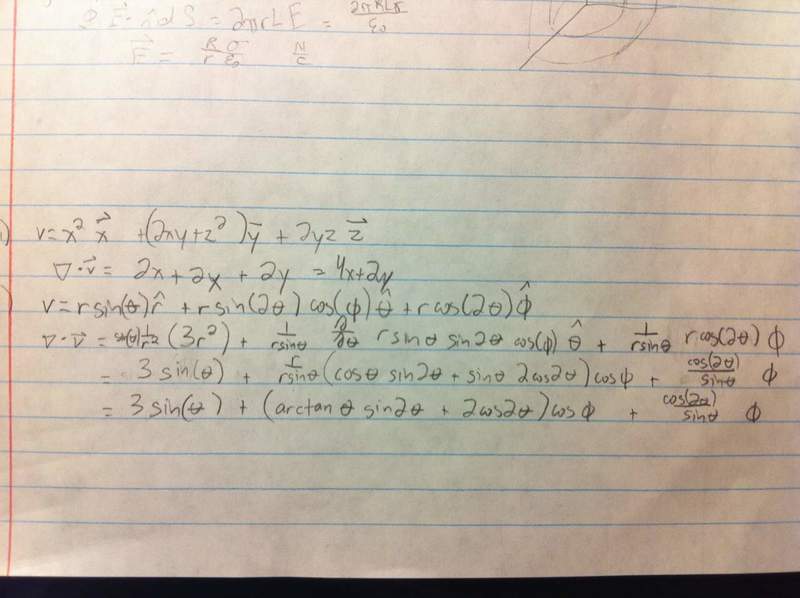 ∮ E⃗·n̂ dS = 2πrLE = 2πRLσ/ε₀
E⃗ = R/r σ/ε₀ N/C
) v = x² x⃗ + (2xy+z²) y⃗ + 2yz z⃗
∇·v⃗ = 2x + 2x + 2y = 4x+2y
) v = r sin(θ) r̂ + r sin(2θ) cos(ϕ) θ̂ + r cos(2θ) ϕ̂
∇·v⃗ = sin(θ) 1/r² (3r²) + 1/rsinθ ∂/∂θ r sinθ sin2θ cos(ϕ) θ̂ + 1/rsinθ r cos(2θ) ϕ
= 3 sin(θ) + r/rsinθ (cosθ sin2θ + sinθ 2cos2θ) cosϕ + cos(2θ)/sinθ ϕ
= 3 sin(θ) + (arctanθ sin2θ + 2cos2θ) cosϕ + cos(2θ)/sinθ ϕ